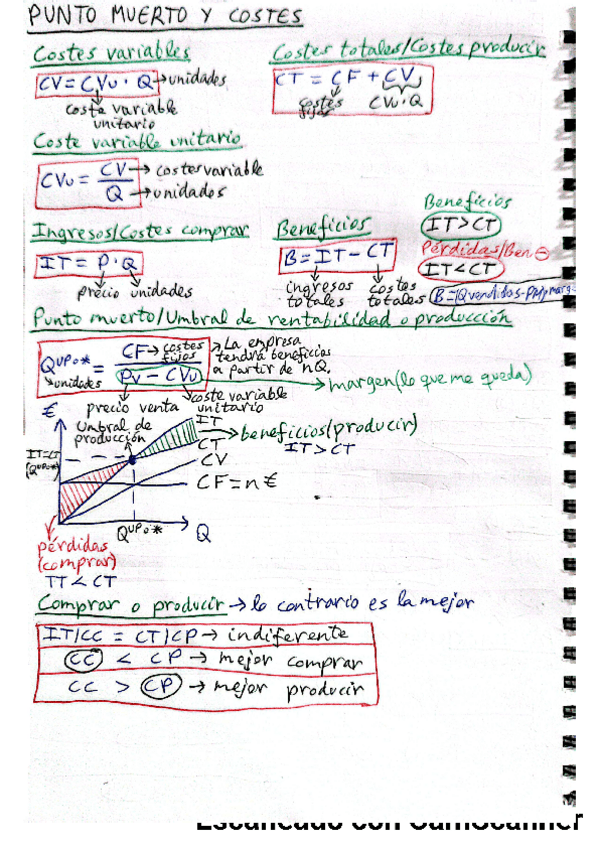 PUNTO MUERTO Y COSTES
Costes variables
CV = CVu · Q → unidades
coste variable
unitario
Costes totales/Costes producir
CT = CF + CV
costes
fijos
CVu·Q
Coste variable unitario
CVu = CV → costes variable
Q → unidades
Ingresos/Costes comprar
IT = P · Q
precio unidades
Beneficios
B = IT - CT
ingresos
totales
costes
totales
Beneficios
IT > CT
Pérdidas/Ben ⊖
IT < CT
Punto muerto/Umbral de rentabilidad o producción
Q^UPo* = CF → costes
fijos
Pv - CVu
unidades
→ La empresa
tendrá beneficios
a partir de nQ.
→ margen (lo que me queda)
precio venta
coste variable
unitario
€
Umbral de
producción
IT=CT
(Q^UPo*)
IT
CT
CV
CF = n €
→ beneficios (producir)
IT > CT
Q^UPo*
Q
pérdidas
(comprar)
IT < CT
Comprar o producir → lo contrario es la mejor
IT/CC = CT/CP → indiferente
CC < CP → mejor comprar
CC > CP → mejor producir
Escaneado con CamScanner